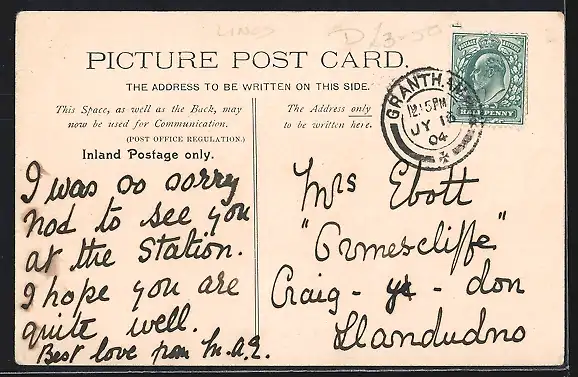 LINCS D £3-50
PICTURE POST CARD.
THE ADDRESS TO BE WRITTEN ON THIS SIDE.
This Space, as well as the Back, may
now be used for Communication.
(POST OFFICE REGULATION.)
Inland Postage only.
The Address only
to be written here.
POSTAGE REVENUE
HALF PENNY
GRANTHAM
12.15PM
JY 18
04
I was so sorry
not to see you
at the station.
I hope you are
quite well.
Best love from M.A.E.
Mrs Ebott
"Ormescliffe"
Craig - y - don
Llandudno